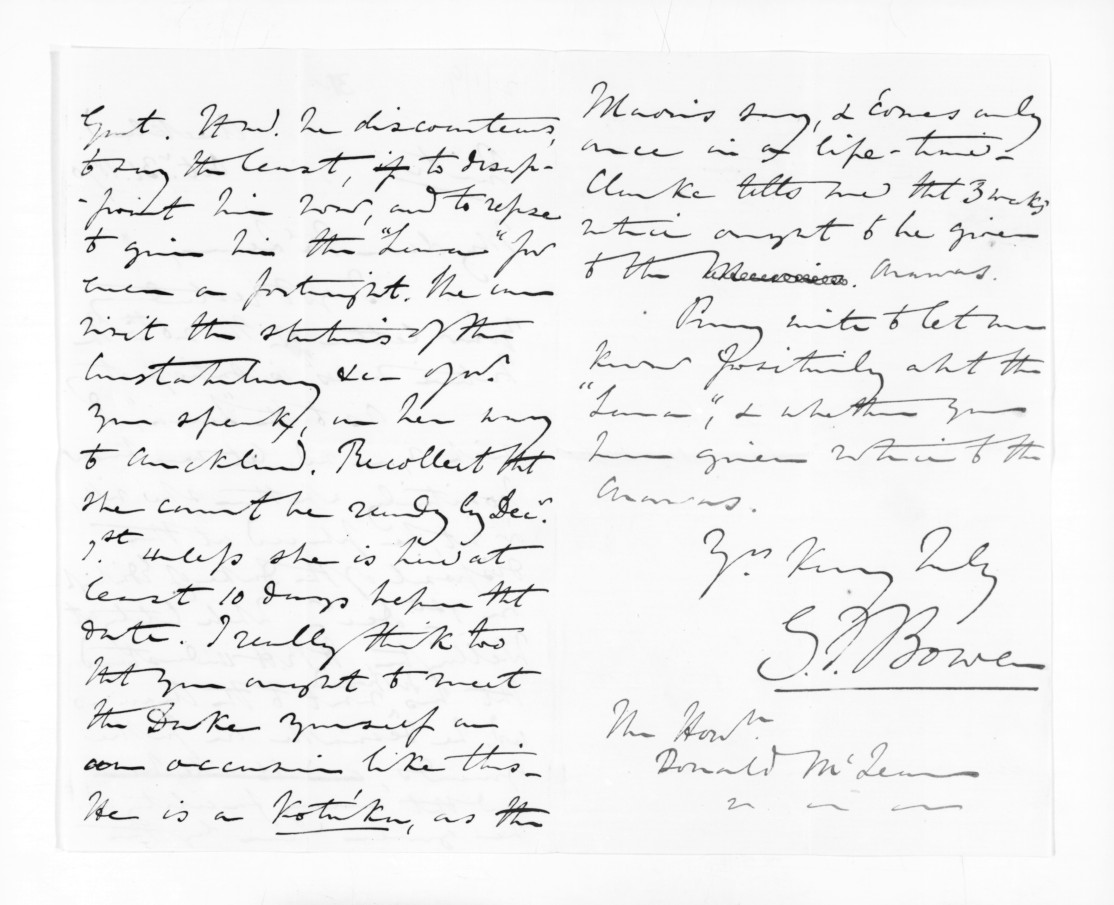 Govt. It wd. be discourteous,
to say the least, if to disap-
-point him now, and to refuse
to give him the "Luna" for
even a fortnight. She can
visit the stations of the
Constabulary &c- of wh.
you speak, on her way
to Auckland. Recollect tht
she cannot be ready by Decr.
1st unless she is here at
least 10 days before tht
date. I really think too
tht you ought to meet
the Duke yourself on
an occasion like this-
He is a Kotuku, as the
Maoris say, & comes only
once in a life-time-
Clarke tells me tht 3 weeks
notice ought to be given
to the Arawas.
Pray write to let me
know positively abt the
"Luna", & whether you
have given notice to the
Arawas.
Yrs. very truly
G.F. Bowen
The Honble
Donald McLean